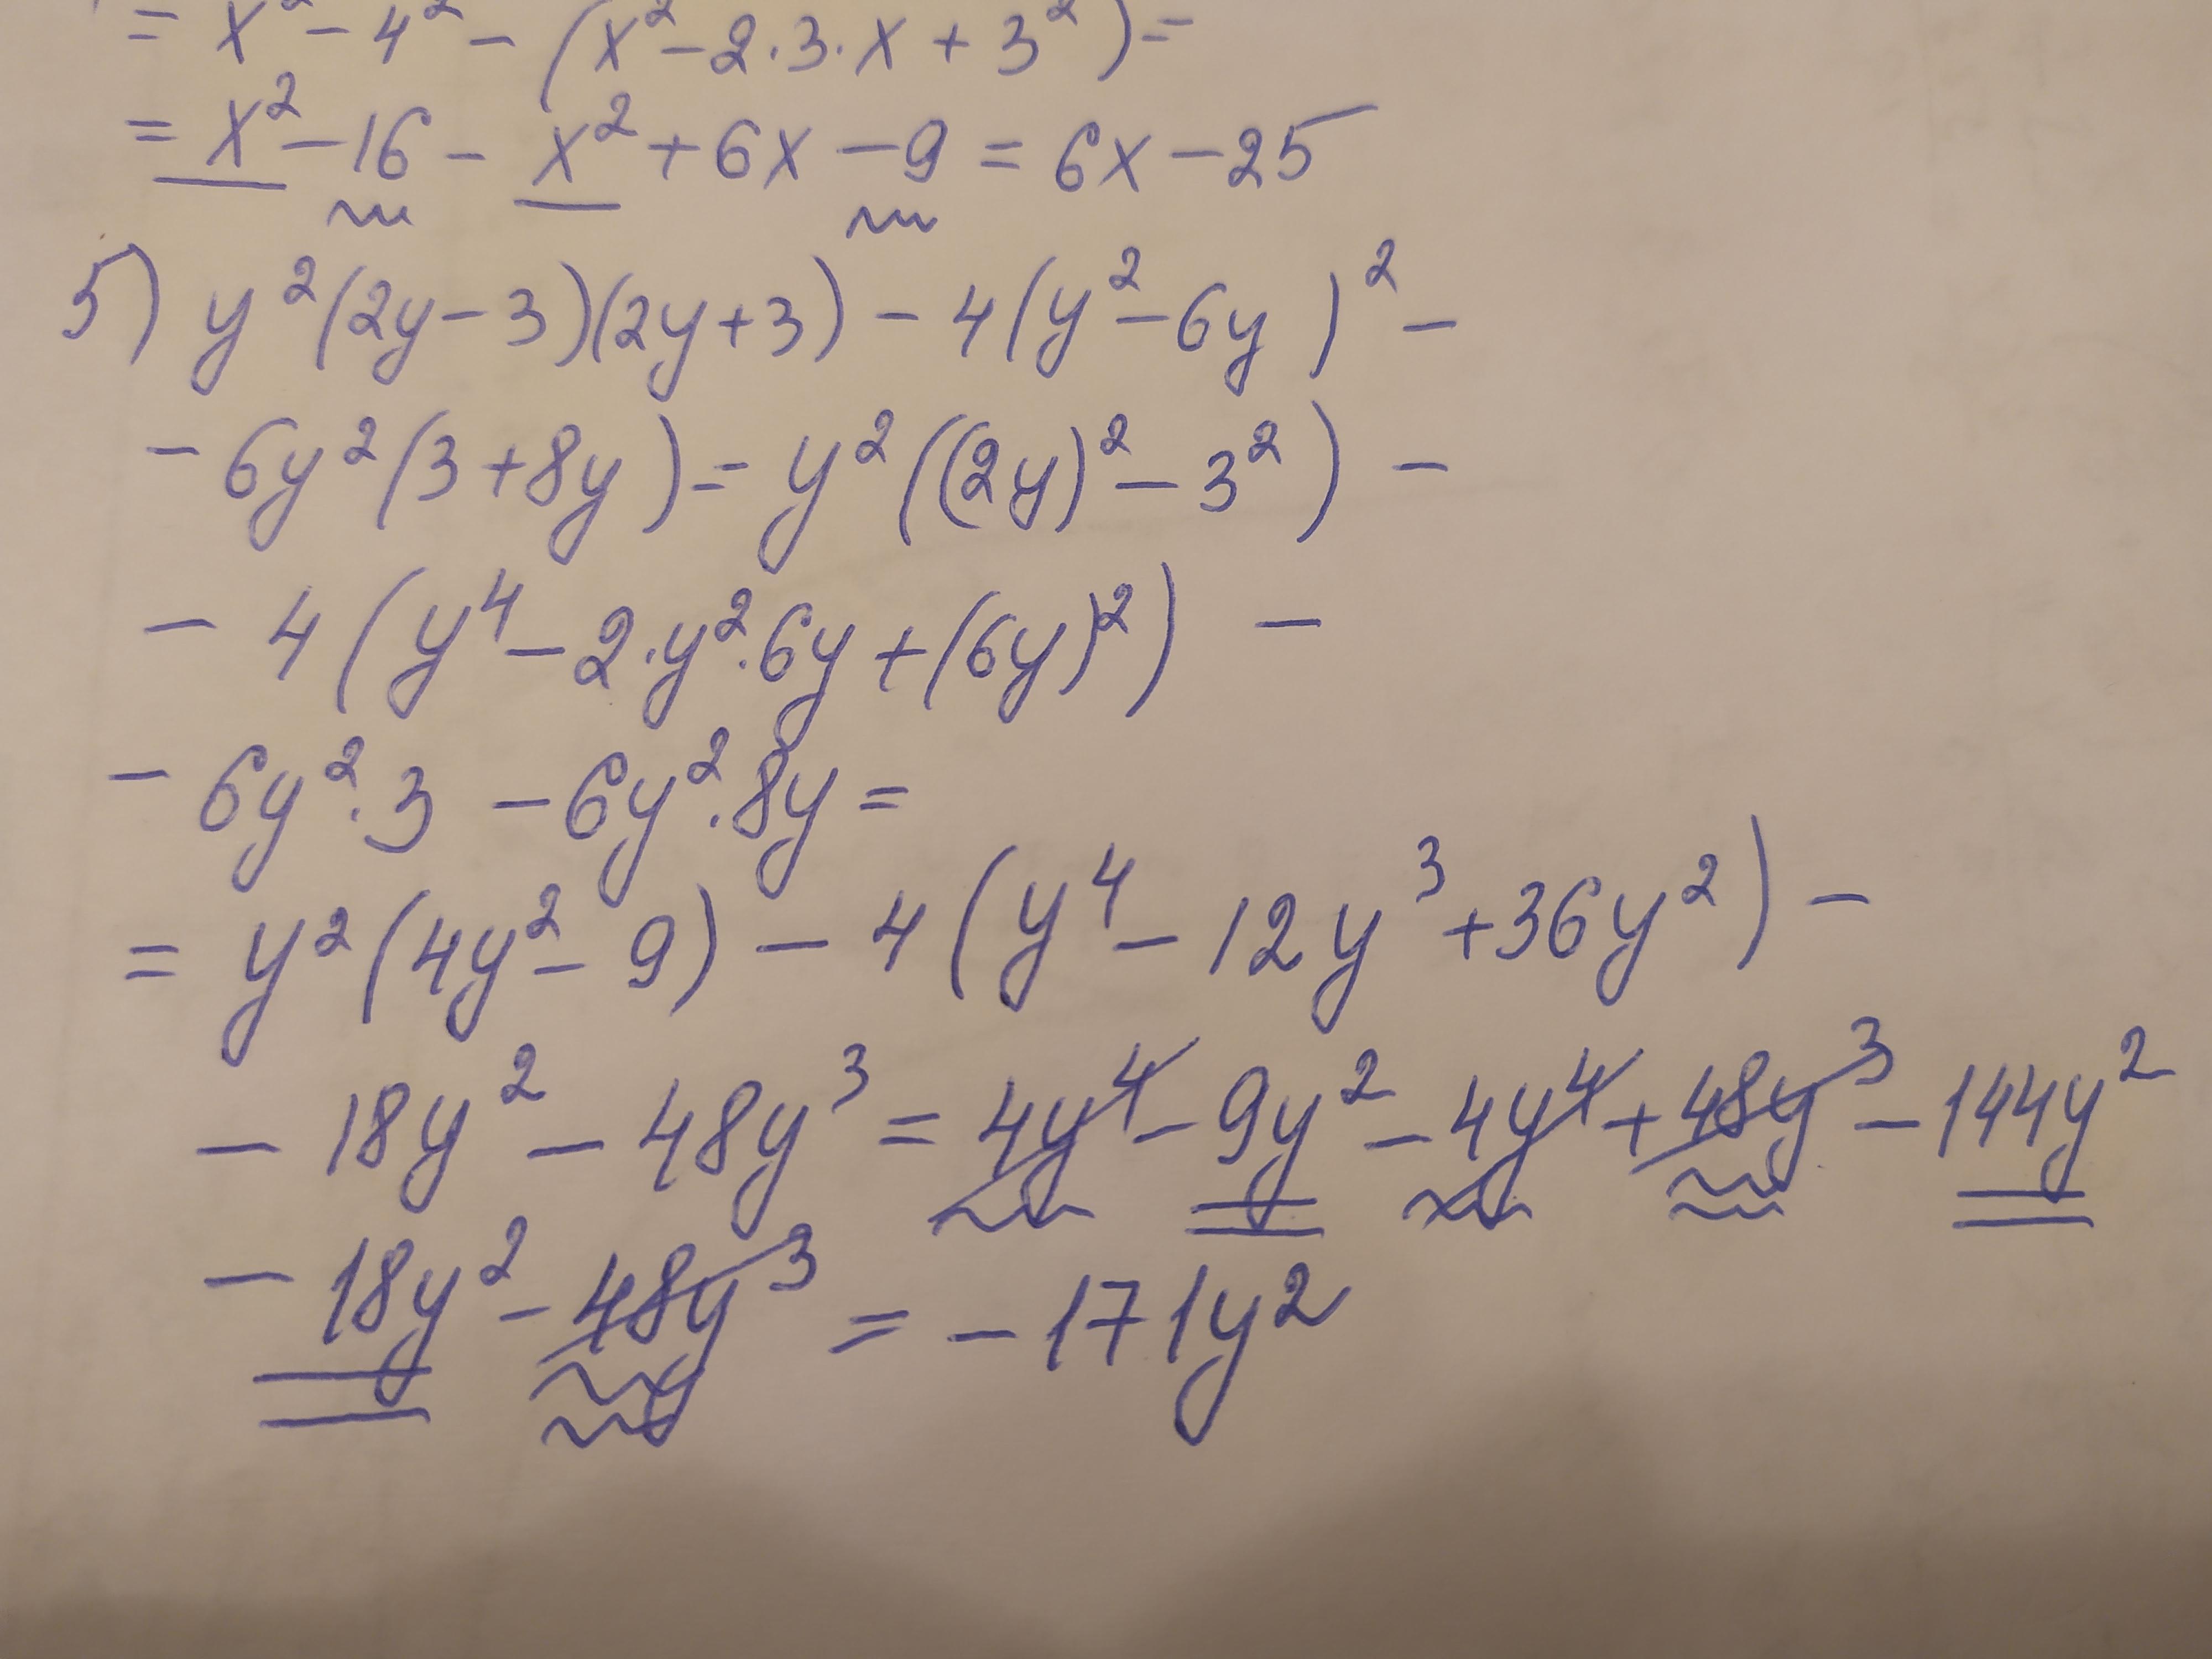 = x² - 4² - (x² - 2·3·x + 3²) =
= x² - 16 - x² + 6x - 9 = 6x - 25
5) y²(2y - 3)(2y + 3) - 4(y² - 6y)² -
- 6y²(3 + 8y) = y²((2y)² - 3²) -
- 4(y⁴ - 2·y²·6y + (6y)²) -
- 6y²·3 - 6y²·8y =
= y²(4y² - 9) - 4(y⁴ - 12y³ + 36y²) -
- 18y² - 48y³ = 4y⁴ - 9y² - 4y⁴ + 48y³ - 144y²
- 18y² - 48y³ = - 171y²